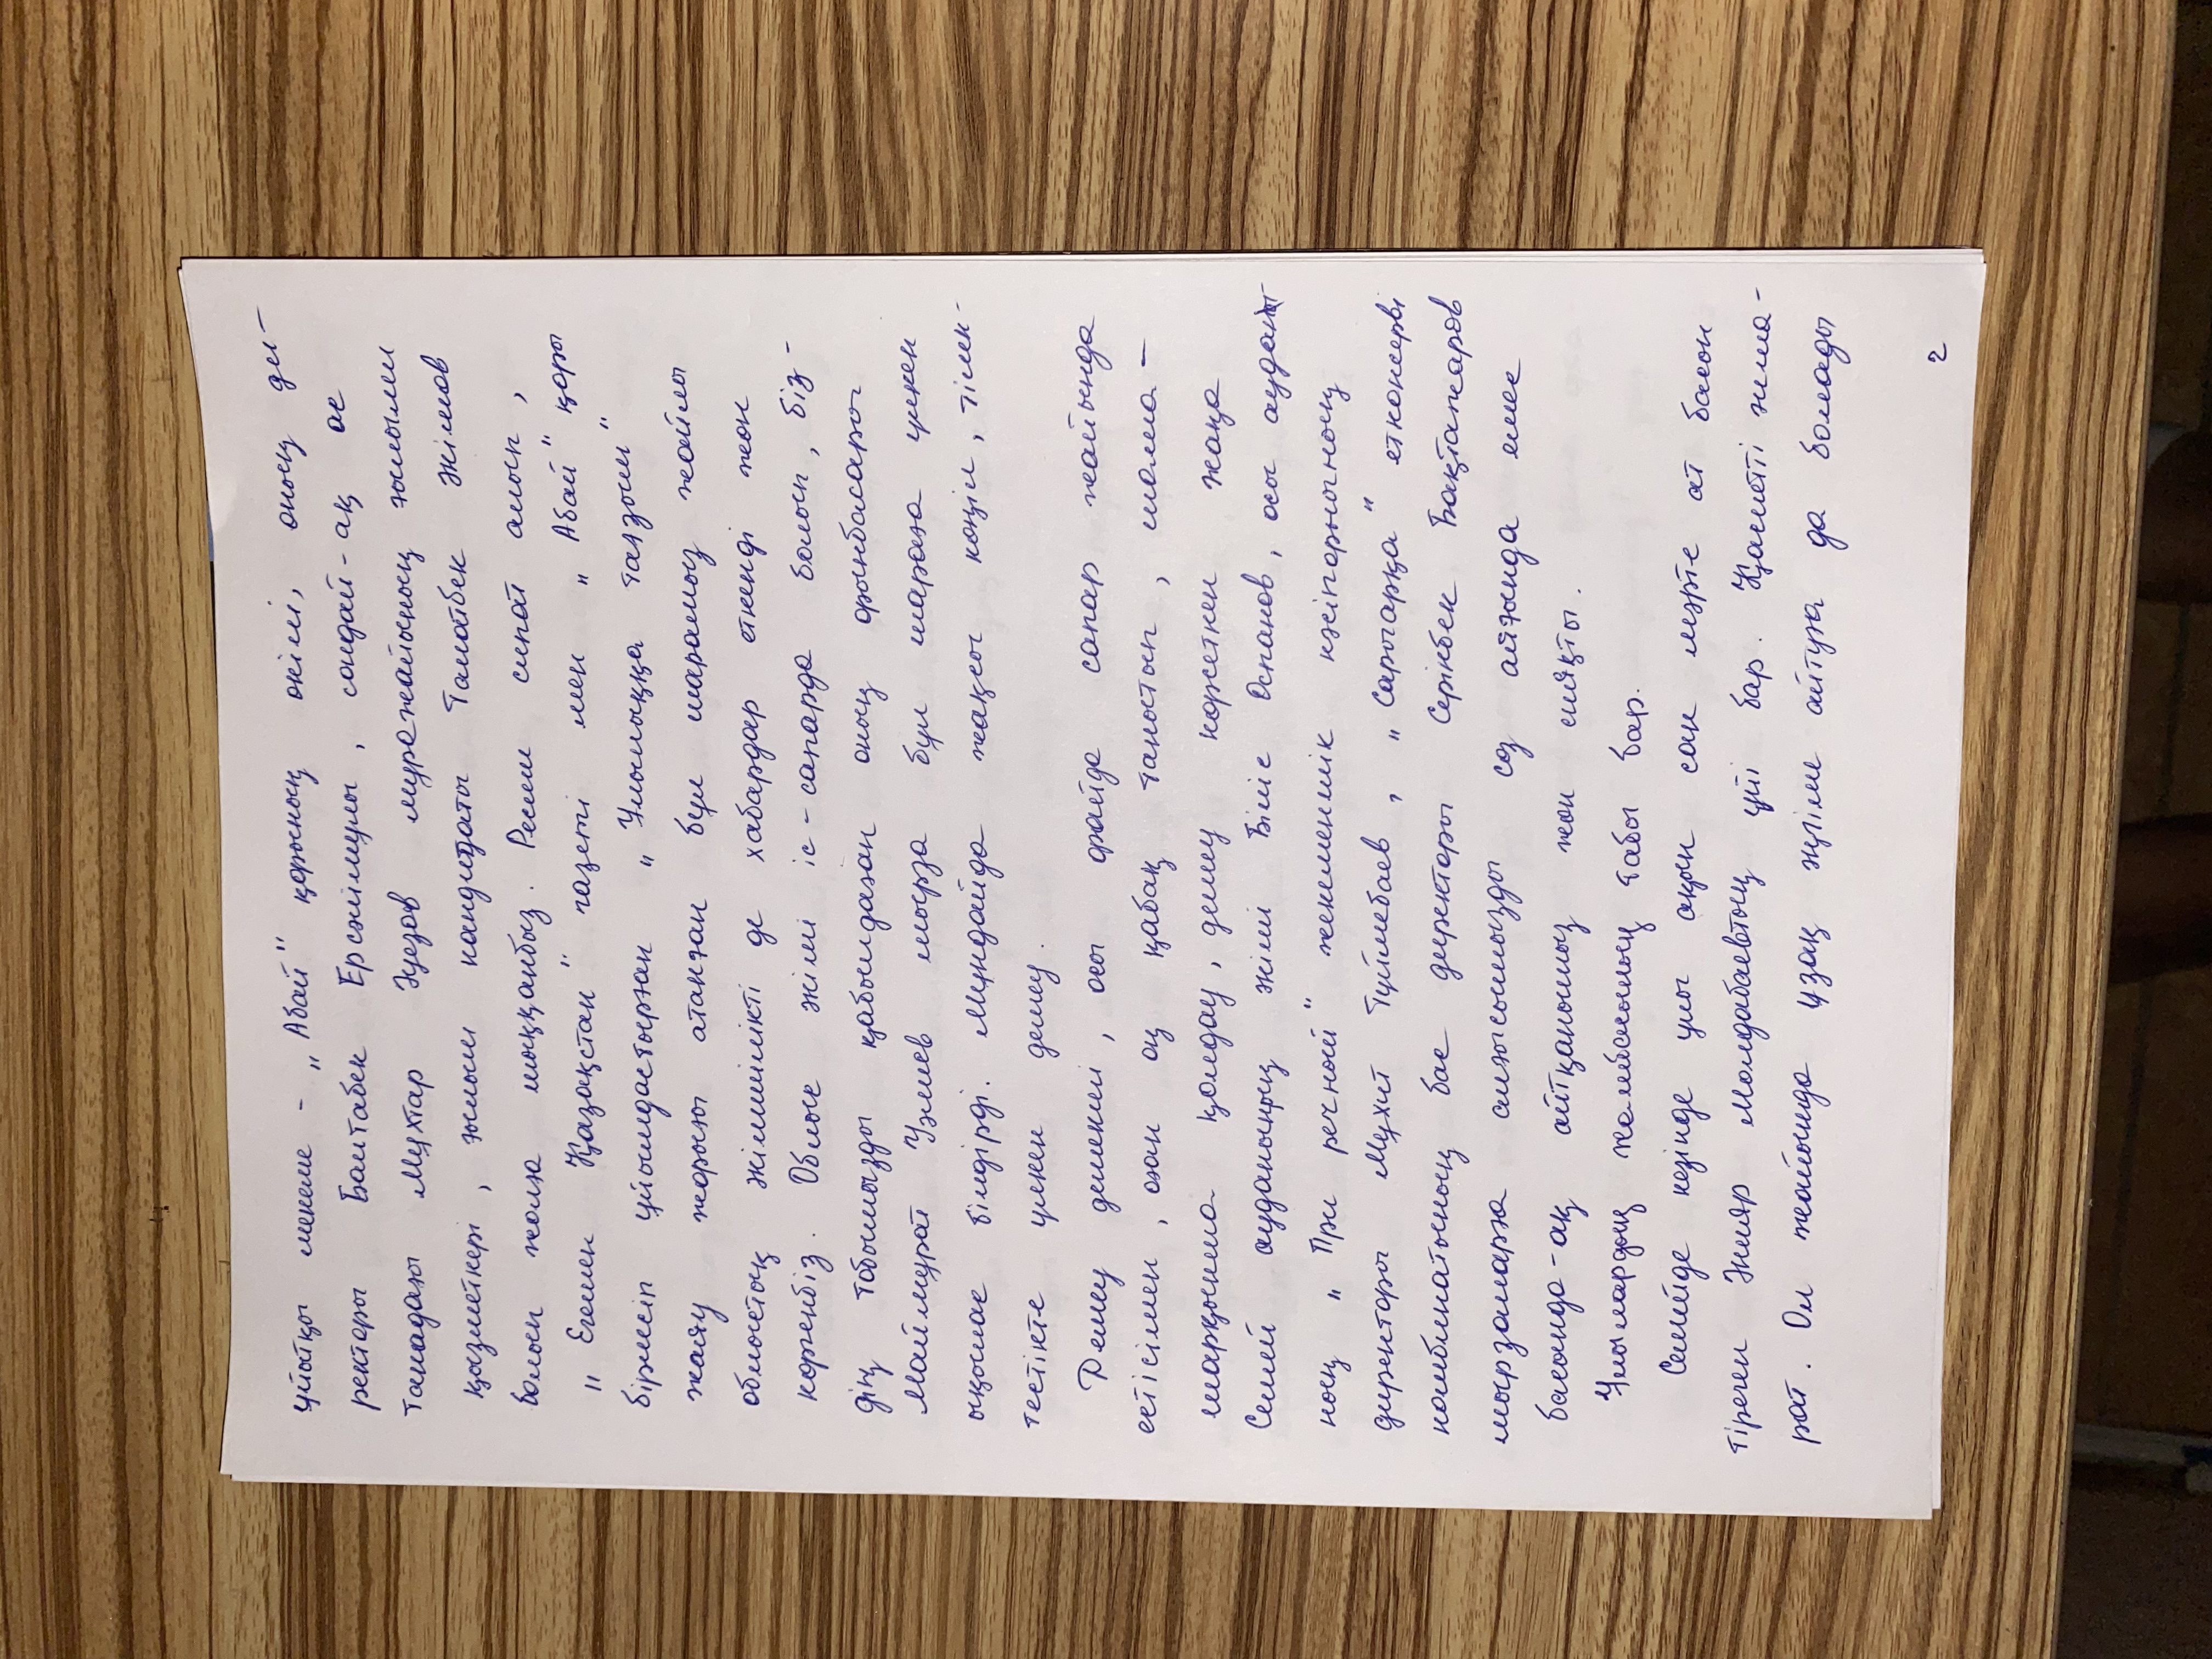 ұйытқы мекеме - „Абай" қорының өкілі, оның ди-
ректоры Балтабек Ерсәлімұлы, сондай-ақ ас
танадағы Мұхтар Әуезов мұражайының ғылыми
қызметкері, ғылым кандидаты Талатбек Әкімов
болып жолға шыққанбыз. Ресми сипат алып,
„Егемен Қазақстан" газеті мен „Абай" қоры
бірлесіп ұйымдастырған „Ұлылыққа тағзым"
жаяу жорығы атанған бұл шарамыз жайлы
облыстық әкімшілікті де хабардар еткенді жөн
көргенбіз. Облыс әкімі іс-сапарда болып, біз-
дің тобымызды қабылдаған оның орынбасары
Маймұрат Уәлиев мырза бұл шараға үлкен
ықылас білдірді. Мұндайда жақсы көңіл, тілек-
тестікте үлкен демеу.
Демеу демекші, осы орайда сапар жайында
естісімен, оған оң қабақ танытып, шама-
шарқынша қолдау, демеу көрсеткен жаңа
Семей ауданының әкімі Біліс Оспанов, осы ауданы
ның „При речный" жекеменшік кәсіпорнының
директоры Мұхит Түймебаев, „Сарыарқа" етконсерві
комбинатының бас директоры Серікбек Бақтажаров
мырзаларға алғысымызды сөз айғында емес
басында-ақ айтқанымыз жөн сияқты.
Ұлылардың жалғасының табы бар.
Семейде кезінде ұлы ақын сан мәрте ат басын
тіреген Әнияр Молдабаевтың үйі бар. Қасиетті ғима-
рат. Ол жайында ұзақ әңгіме айтуға да болады
2